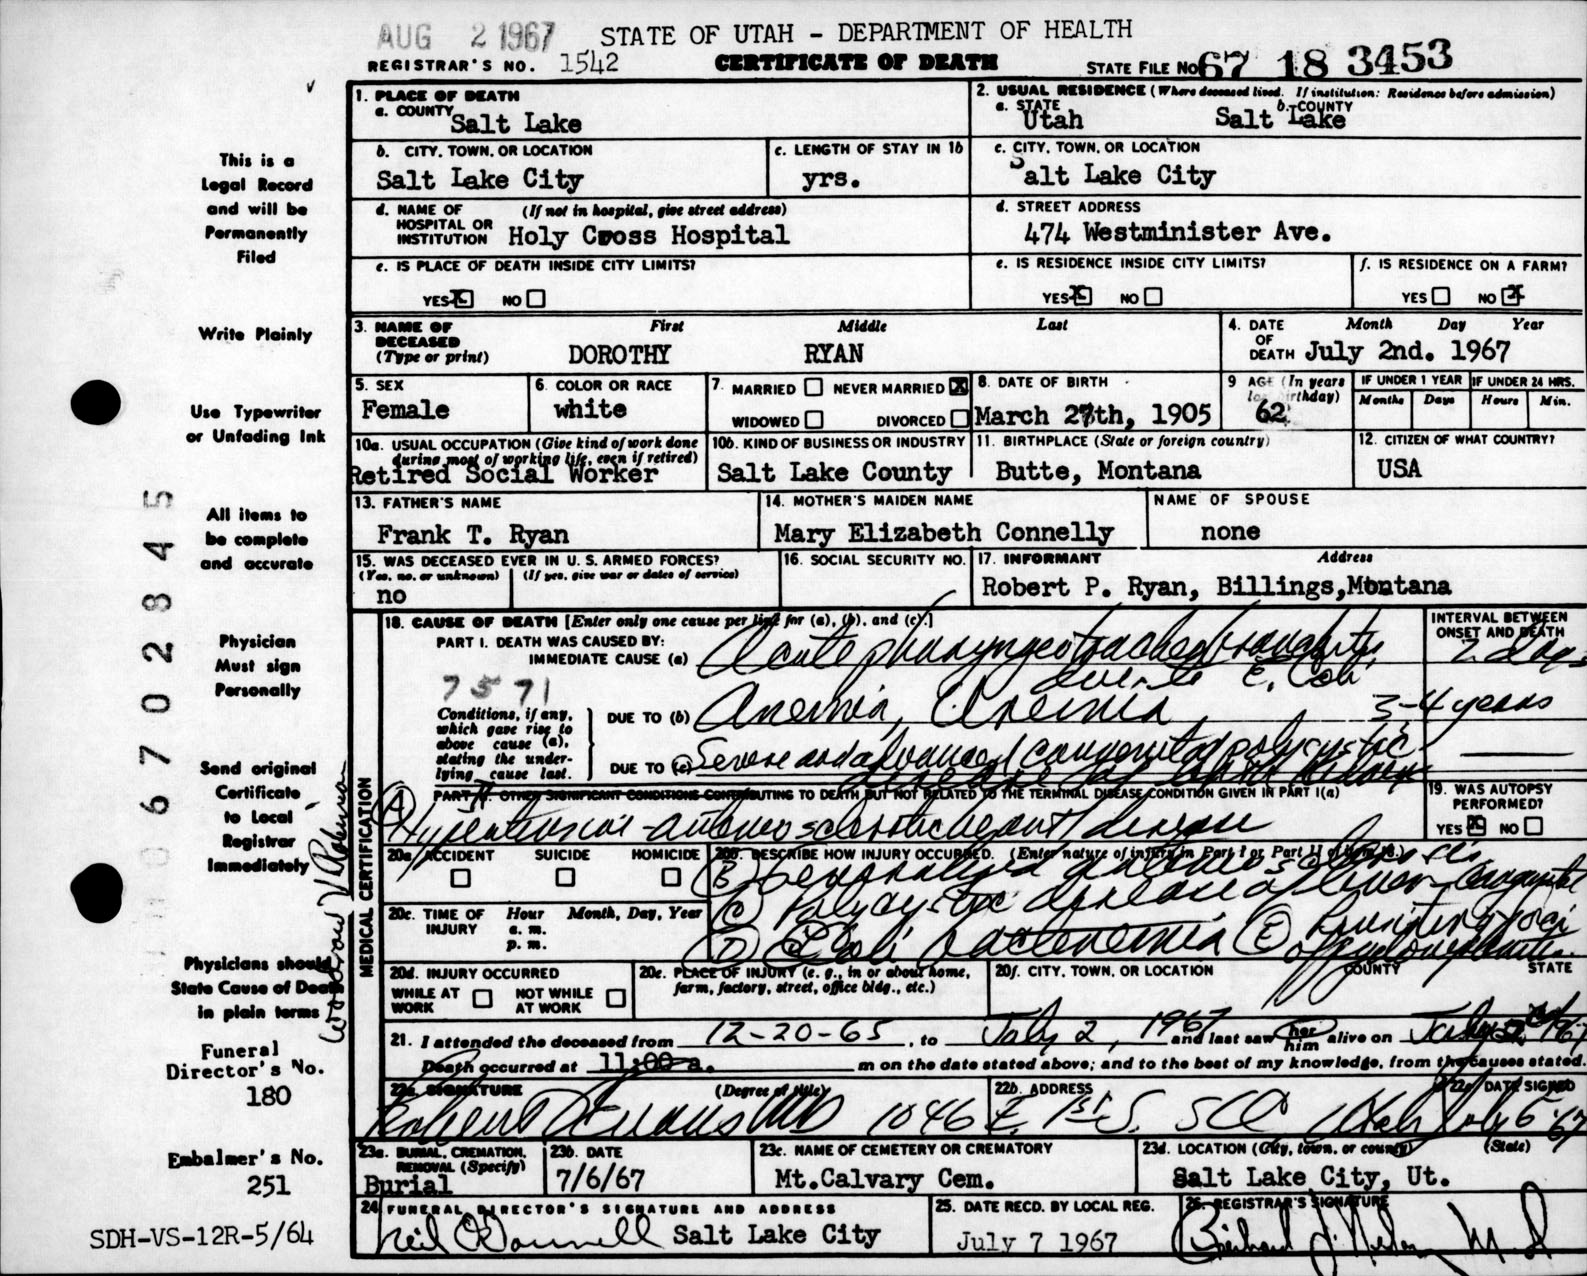 AUG 2 1967 STATE OF UTAH - DEPARTMENT OF HEALTH
REGISTRAR'S NO. 1542 CERTIFICATE OF DEATH STATE FILE NO. 67 18 3453
1. PLACE OF DEATH
a. COUNTY Salt Lake
2. USUAL RESIDENCE (Where deceased lived. If institution: Residence before admission)
a. STATE Utah b. COUNTY Salt Lake
b. CITY, TOWN, OR LOCATION Salt Lake City
c. LENGTH OF STAY IN 1b yrs.
c. CITY, TOWN, OR LOCATION Salt Lake City
d. NAME OF HOSPITAL OR INSTITUTION (If not in hospital, give street address) Holy Cross Hospital
d. STREET ADDRESS 474 Westminister Ave.
e. IS PLACE OF DEATH INSIDE CITY LIMITS?
YES X NO
e. IS RESIDENCE INSIDE CITY LIMITS?
YES X NO
f. IS RESIDENCE ON A FARM?
YES NO X
3. NAME OF DECEASED (Type or print) First Middle Last
DOROTHY RYAN
4. DATE OF DEATH Month Day Year
July 2nd. 1967
5. SEX Female
6. COLOR OR RACE white
7. MARRIED NEVER MARRIED X
WIDOWED DIVORCED
8. DATE OF BIRTH March 27th, 1905
9 AGE (In years last birthday) 62
IF UNDER 1 YEAR Months Days
IF UNDER 24 HRS. Hours Min.
10a. USUAL OCCUPATION (Give kind of work done during most of working life, even if retired)
Retired Social Worker
10b. KIND OF BUSINESS OR INDUSTRY Salt Lake County
11. BIRTHPLACE (State or foreign country) Butte, Montana
12. CITIZEN OF WHAT COUNTRY? USA
13. FATHER'S NAME Frank T. Ryan
14. MOTHER'S MAIDEN NAME Mary Elizabeth Connelly
NAME OF SPOUSE none
15. WAS DECEASED EVER IN U. S. ARMED FORCES?
(Yes, no, or unknown) (If yes, give war or dates of service)
no
16. SOCIAL SECURITY NO.
17. INFORMANT Address
Robert P. Ryan, Billings, Montana
18. CAUSE OF DEATH [Enter only one cause per line for (a), (b), and (c).]
INTERVAL BETWEEN ONSET AND DEATH
PART I. DEATH WAS CAUSED BY:
IMMEDIATE CAUSE (a) Acute pharyngeotracheobronchitis 2 days
due to E. Coli
7571
Conditions, if any, which gave rise to above cause (a), stating the underlying cause last.
DUE TO (b) Anemia, Uremia, 3-4 years
DUE TO (c) Severe and advanced congenital polycystic
disease of both kidneys
PART II. OTHER SIGNIFICANT CONDITIONS CONTRIBUTING TO DEATH BUT NOT RELATED TO THE TERMINAL DISEASE CONDITION GIVEN IN PART I(a)
(A) Hypertensive-arteriosclerotic heart disease
19. WAS AUTOPSY PERFORMED?
YES X NO
20a. ACCIDENT SUICIDE HOMICIDE
20b. DESCRIBE HOW INJURY OCCURRED. (Enter nature of injury in Part I or Part II of item 18.)
(B) Generalized arteriosclerosis
(C) Polycystic disease of liver - congenital
(D) E Coli bacteremia (E)
of pyelonephritis
20c. TIME OF INJURY Hour Month, Day, Year
a. m.
p. m.
20d. INJURY OCCURRED
WHILE AT WORK NOT WHILE AT WORK
20e. PLACE OF INJURY (e. g., in or about home, farm, factory, street, office bldg., etc.)
20f. CITY, TOWN, OR LOCATION COUNTY STATE
21. I attended the deceased from 12-20-65, to July 2, 1967 and last saw her him alive on July 2 1967
Death occurred at 11:00 a. m on the date stated above; and to the best of my knowledge, from the causes stated.
22a. SIGNATURE (Degree or title) 22b. ADDRESS 22c. DATE SIGNED
Robert Evans MD 1046 E. 1st S. SLC Utah July 6 '67
23a. BURIAL, CREMATION, REMOVAL (Specify) Burial
23b. DATE 7/6/67
23c. NAME OF CEMETERY OR CREMATORY Mt.Calvary Cem.
23d. LOCATION (City, town, or county) (State) Salt Lake City, Ut.
24 FUNERAL DIRECTOR'S SIGNATURE AND ADDRESS
Neil O'Donnell Salt Lake City
25. DATE RECD. BY LOCAL REG. July 7 1967
26. REGISTRAR'S SIGNATURE
MEDICAL CERTIFICATION
This is a
Legal Record
and will be
Permanently
Filed
Write Plainly
Use Typewriter
or Unfading Ink
All items to
be complete
and accurate
Physician
Must sign
Personally
Send original
Certificate
to Local
Registrar
Immediately
Physicians should
State Cause of Death
in plain terms
Funeral
Director's No.
180
Embalmer's No.
251
SDH-VS-12R-5/64
6702845